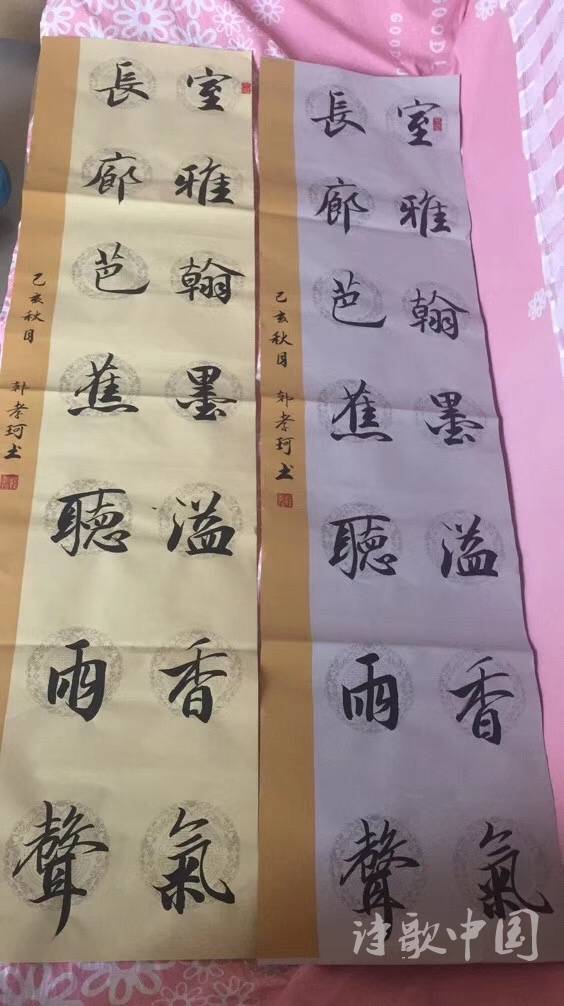 室雅翰墨溢香氣
長廊芭蕉聽雨聲
己亥秋月 郭孝珂书
室雅翰墨溢香氣
長廊芭蕉聽雨聲
己亥秋月 郭孝珂书
GOOD
GOOD
诗歌中国